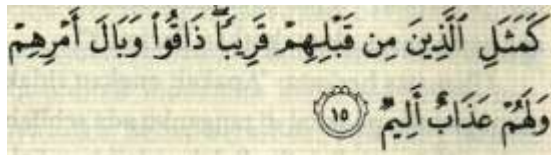 كَمَثَلِ ٱلَّذِينَ مِن قَبْلِهِمْ قَرِيبًاۖ ذَاقُوا۟ وَبَالَ أَمْرِهِمْ
وَلَهُمْ عَذَابٌ أَلِيمٌ ١٥